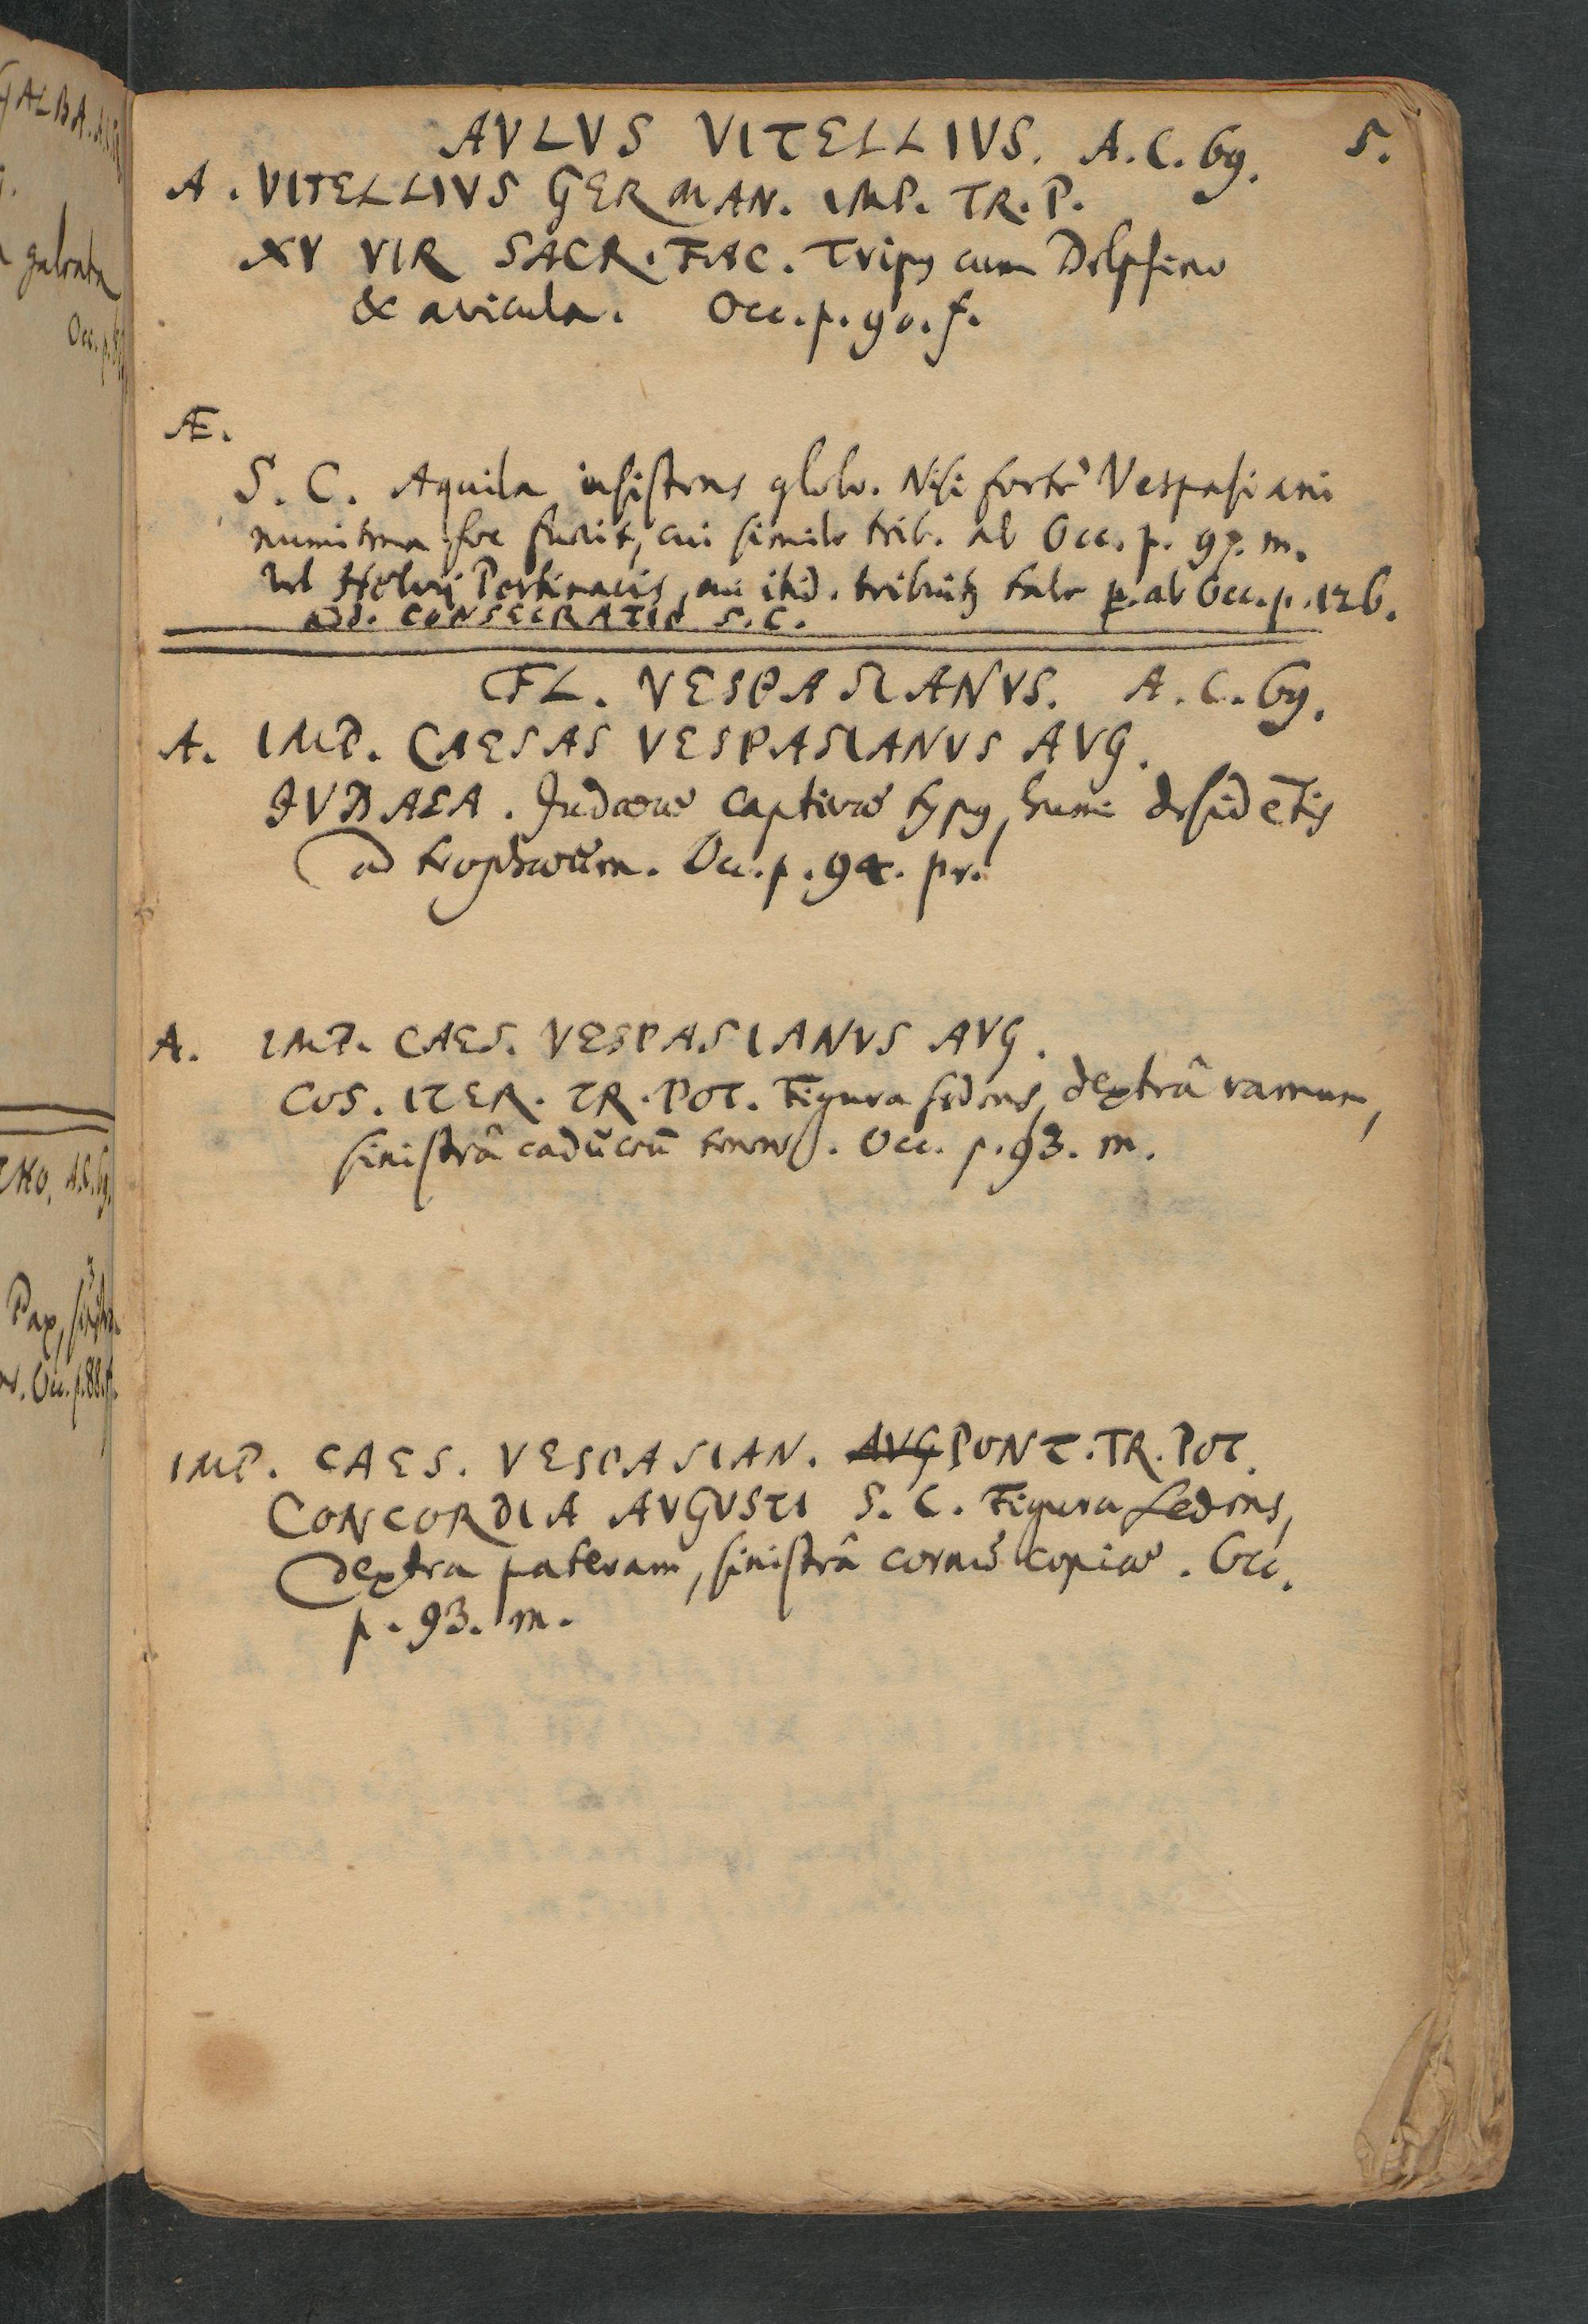 AVLVS VITELLIVS. A.C. 69. 5.
A. VITELLIVS GERMAN. IMP. TR. P.
XV VIR SACR. FAC. Tripus cum Delphino
& avicula. Occ. p. 90. f.
Æ.
S. C. Aquila insistens globo. Nisi fortè Vespasiani
numisma hoc fuerit, cui simile trib. ab Occ. p. 97. m.
vel Helvij Pertinacis, cui itid. tribuitur tale p. ab Occ. p. 126.
add. CONSECRATIO S. C.
FL. VESPASIANVS. A. C. 69.
A. IMP. CAESAS VESPASIANVS AVG.
IVDAEA. Judaeae captivae typus, humi desidētis
ad trophaeum. Occ. p. 94. pr.
A. IMP. CAES. VESPASIANVS AVG.
COS. ITER. TR. POT. Figura sedens, dextrâ ramum,
sinistrâ caduceū tenens. Occ. p. 93. m.
IMP. CAES. VESPASIAN. AVG PONT. TR. POT.
CONCORDIA AVGVSTI S. C. Figura sedens,
dextra pateram, sinistrâ cornu copiae. Occ.
p. 93. m.